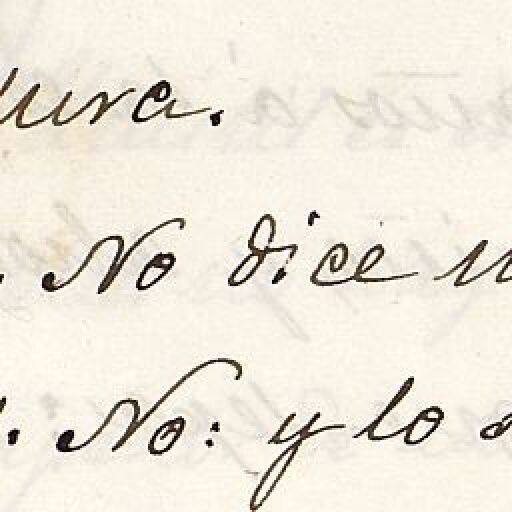 ura.
. No dice
. No: y lo